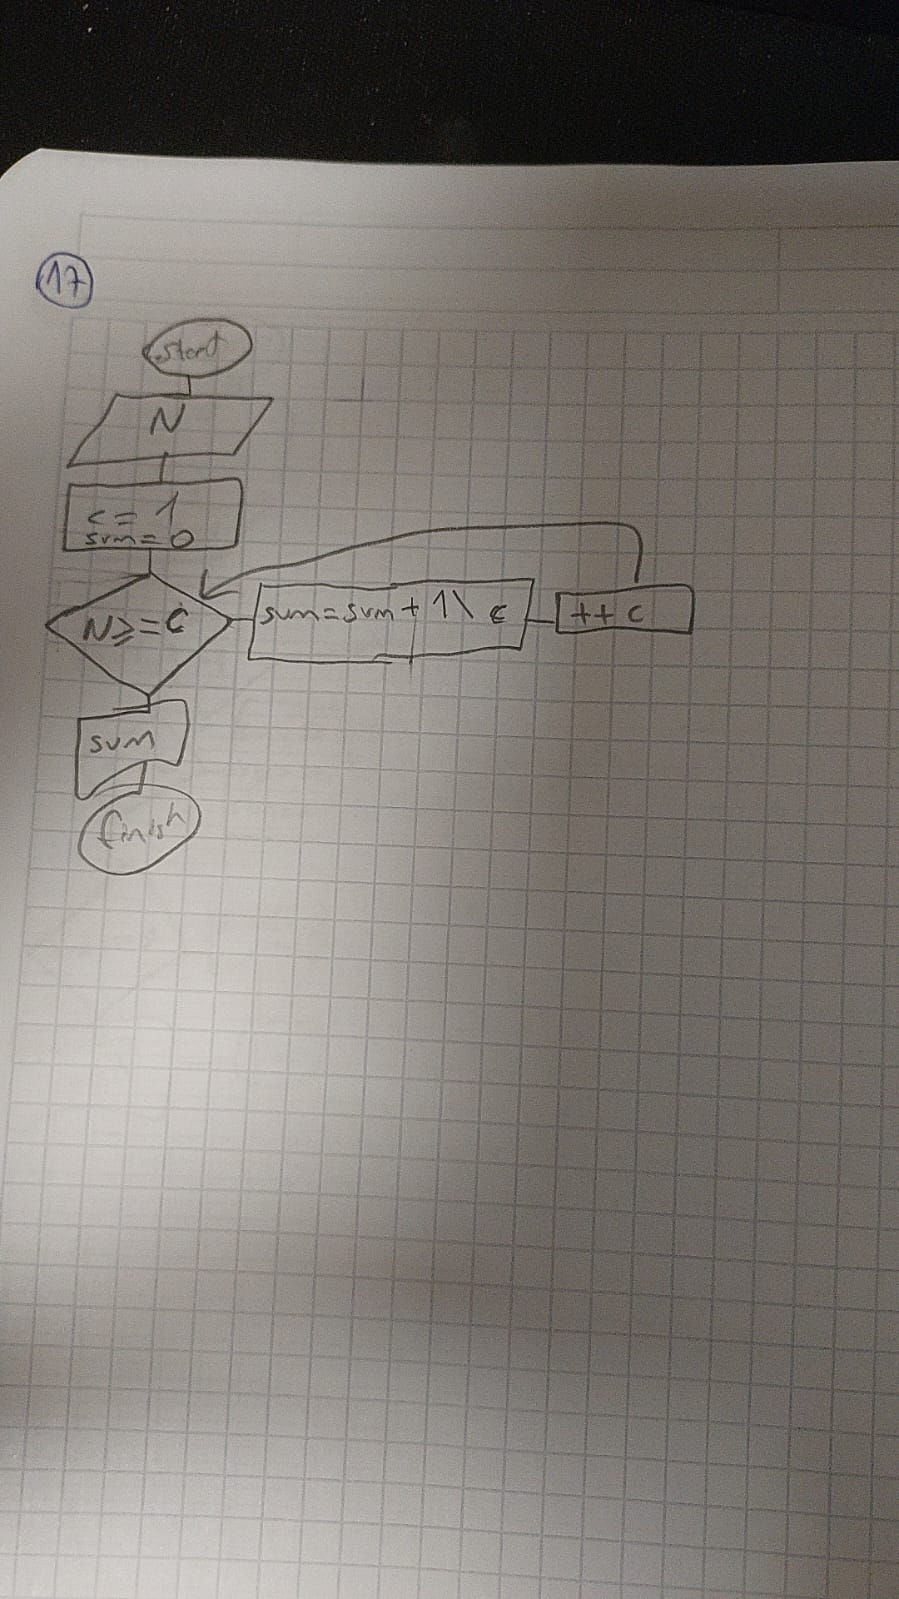 17
Start
N
c = 1
sum = 0
N>=c
sum=sum + 1\ c
++ c
sum
finish